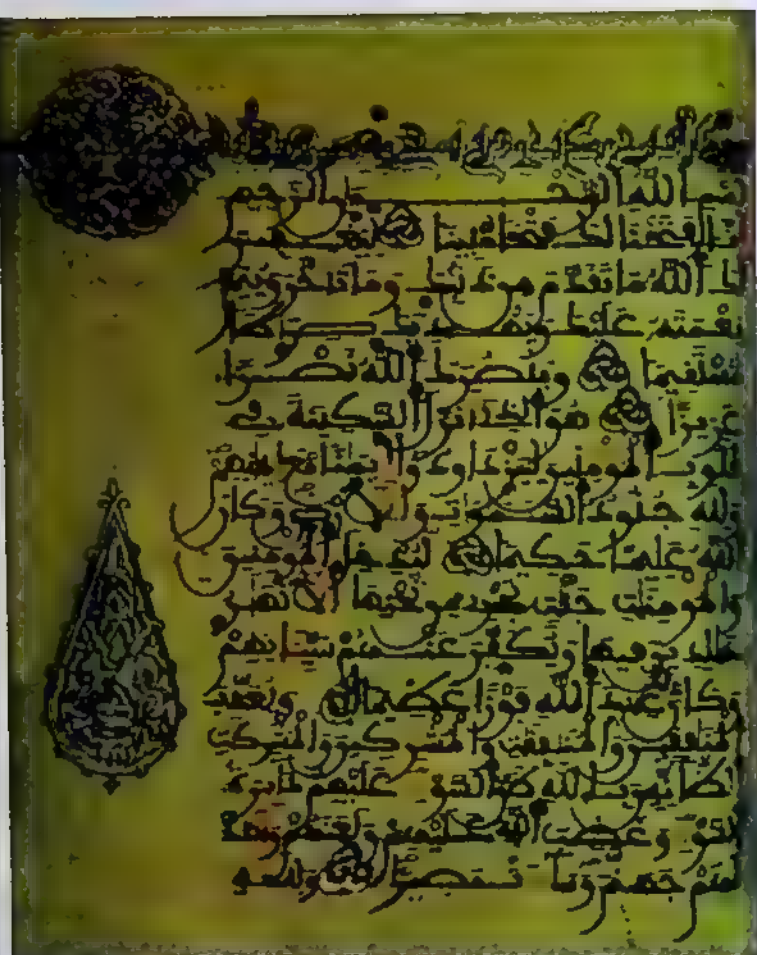 بسم الله الرحمن الرحيم
إنا فتحنا لك فتحا مبينا ليغفر
لك الله ما تقدم من ذنبك وما تأخر ويتم
نعمته عليك ويهديك صرطا
مستقيما وينصرك الله نصرا
عزيزا هو الذي أنزل السكينة في
قلوب المومنين ليزدادوا إيمنا مع إيمنهم
ولله جنود السموت والارض وكان
الله عليما حكيما ليدخل المومنين
والمومنت جنت تجري من تحتها الانهر
خلدين فيها ويكفر عنهم سياتهم
وكان ذلك عند الله فوزا عظيما ويعذب
المنفقين والمنفقت والمشركين والمشركت
الظانين بالله ظن السوء عليهم دائرة
السوء وغضب الله عليهم ولعنهم وأعد
لهم جهنم وساءت مصيرا ولله